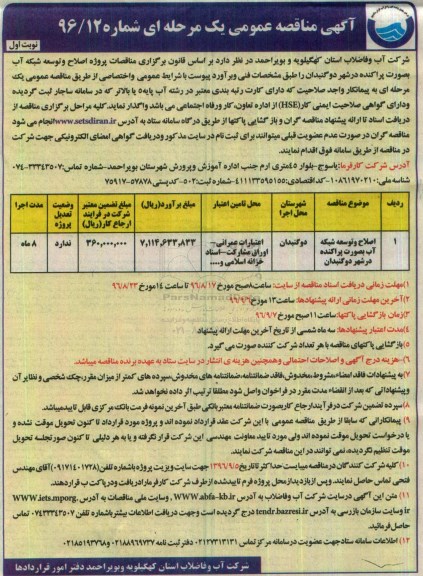 آگهی مناقصه عمومی یک مرحله ای شماره ۹۶/۱۲
نوبت اول
شرکت آب وفاضلاب استان کهگیلویه و بویراحمد در نظر دارد بر اساس قانون برگزاری مناقصات پروژه اصلاح و توسعه شبکه آب
بصورت پراکنده درشهر دوگنبدان را طبق مشخصات فنی وبرآورد پیوست با شرایط عمومی واختصاصی از طریق مناقصه عمومی یک
مرحله ای به پیمانکار واجد صلاحیت که دارای کارت رتبه بندی معتبر در رشته آب پایه۵ یا بالاتر که در سامانه ساجار ثبت گردیده
ودارای گواهی صلاحیت ایمنی کار(HSE) از اداره تعاون، کار ورفاه اجتماعی می باشد واگذار نماید. کلیه مراحل برگزاری مناقصه از
دریافت اسناد تا ارائه پیشنهاد مناقصه گران و باز گشایی پاکتها از طریق درگاه سامانه ستاد به آدرس www.setsdiran.ir انجام می شود
مناقصه گران در صورت عدم عضویت قبلی میتوانند برای ثبت نام در سایت مذکور ودریافت گواهی امضای الکترونیکی جهت شرکت
در مناقصه از طریق سامانه فوق اقدام نمایند.
آدرس شرکت کارفرما: یاسوج-بلوار ۴۵متری ارم جنب اداره آموزش وپرورش شهرستان بویراحمد-شماره تماس: ۰۷۴-۳۳۳۴۳۵۰۷
شناسه ملی: ۱۰۸۶۱۹۷۰۲۱۰-کداقتصادی: ۴۱۱۱۳۳۵۹۵۱۵۵-شماره ثبت: ۵۰۲-کدپستی: ۵۷۸۷۸-۷۵۹۱۷
ردیف | موضوع مناقصه | شهرستان محل اجرا | محل تامین اعتبار | مبلغ برآورد(ریال) | مبلغ تضمین معتبر شرکت در فرایند ارجاع کار(ریال) | وضعیت تعدیل پروژه | مدت اجرا
۱ | اصلاح وتوسعه شبکه آب بصورت پراکنده درشهر دوگنبدان | دوگنبدان | اعتبارات عمرانی-اوراق مشارکت-اسناد خزانه اسلامی و.... | ۷,۱۱۴,۶۳۳,۸۳۳ | ۳۶۰,۰۰۰,۰۰۰ | ندارد | ۸ ماه
۱)مهلت زمانی دریافت اسناد مناقصه از سایت: ساعت۸صبح مورخ ۹۶/۸/۱۷ تا ساعت ۱۴ مورخ ۹۶/۸/۲۳
۲)آخرین مهلت زمانی ارائه پیشنهادها: ساعت۱۳ مورخ ۹۶/۹/۶
۳)زمان بازگشایی پاکتها: ساعت ۱۱صبح مورخ ۹۶/۹/۷
۴)مدت اعتبار پیشنهادها: سه ماه شمسی از تاریخ آخرین مهلت ارائه پیشنهاد
۵)بازگشایی پاکتهای مناقصه با هر تعداد شرکت کننده صورت می گیرد.
۶)-هزینه درج آگهی و اصلاحات احتمالی وهمچنین هزینه ی انتشار در سایت ستاد به عهده برنده مناقصه میباشد.
۷)به پیشنهادات فاقد امضاء، مشروط، مخدوش، فاقد ضمانتنامه، ضمانتنامه های مخدوش، سپرده های کمتر از میزان مقرر، چک شخصی و نظایر آن
وپیشنهاداتی که بعد از انقضاء مدت مقرر در فراخوان واصل شود مطلقا ترتیب اثر داده نخواهد شد.
۸)سپرده تضمین شرکت درفرآیندارجاع کاربصورت ضمانتنامه معتبربانکی طبق آخرین نمونه فرمت بانک مرکزی قابل تاییدمیباشد.
۹) پیمانکارانی که سابقا از طریق مناقصه عمومی با این شرکت عقد قرارداد نموده اند و پروژه مورد قرارداد تا کنون تحویل موقت نشده و
یا درخواست تحویل موقت نموده اند ولی مورد تایید معاونت مهندسی این شرکت قرار نگرفته و یا به هر دلیلی تا کنون صورتجلسه تحویل
موقت تنظیم نگردیده، نمی توانند در این مناقصه شرکت نمایند.
۱۰)کلیه شرکت کنندگان درمناقصه میبایست حداکثر تا تاریخ۱۳۹۶/۹/۵جهت سایت ویزیت پروژه باشماره تلفن(۰۹۱۷۱۴۰۱۷۲۸)آقای مهندس
فتحی تماس حاصل نمایند. وپس ازبازدیدازمحل پروژه فرم تاییدشده ازطرف شرکت کارفرماراهنگام دریافت پاکات
۱۱) متن این آگهی درسایت شرکت آب وفاضلاب به آدرس WWW.abfa-kb.ir، وسایت ملی مناقصات به آدرس WWW.iets.mporg.
ir وسایت سازمان بازرسی به آدرس tendr.bazresi.ir درج گردیده است وجهت دریافت اطلاعات بیشتر باشماره تلفن ۰۷۴۳۳۳۴۳۵۰۷ تماس
حاصل فرمائید.
۱۲) اطلاعات سامانه ستادجهت عضویت درسامانه مرکز تماس ۰۲۱۲۷۳۱۳۱۳۱ دفتر ثبت نامه ۰۲۱۸۸۹۶۹۷۳۷و۰۲۱۸۵۱۹۳۷۶۸
شرکت آب وفاضلاب استان کهگیلویه وبویراحمد دفتر امور قراردادها